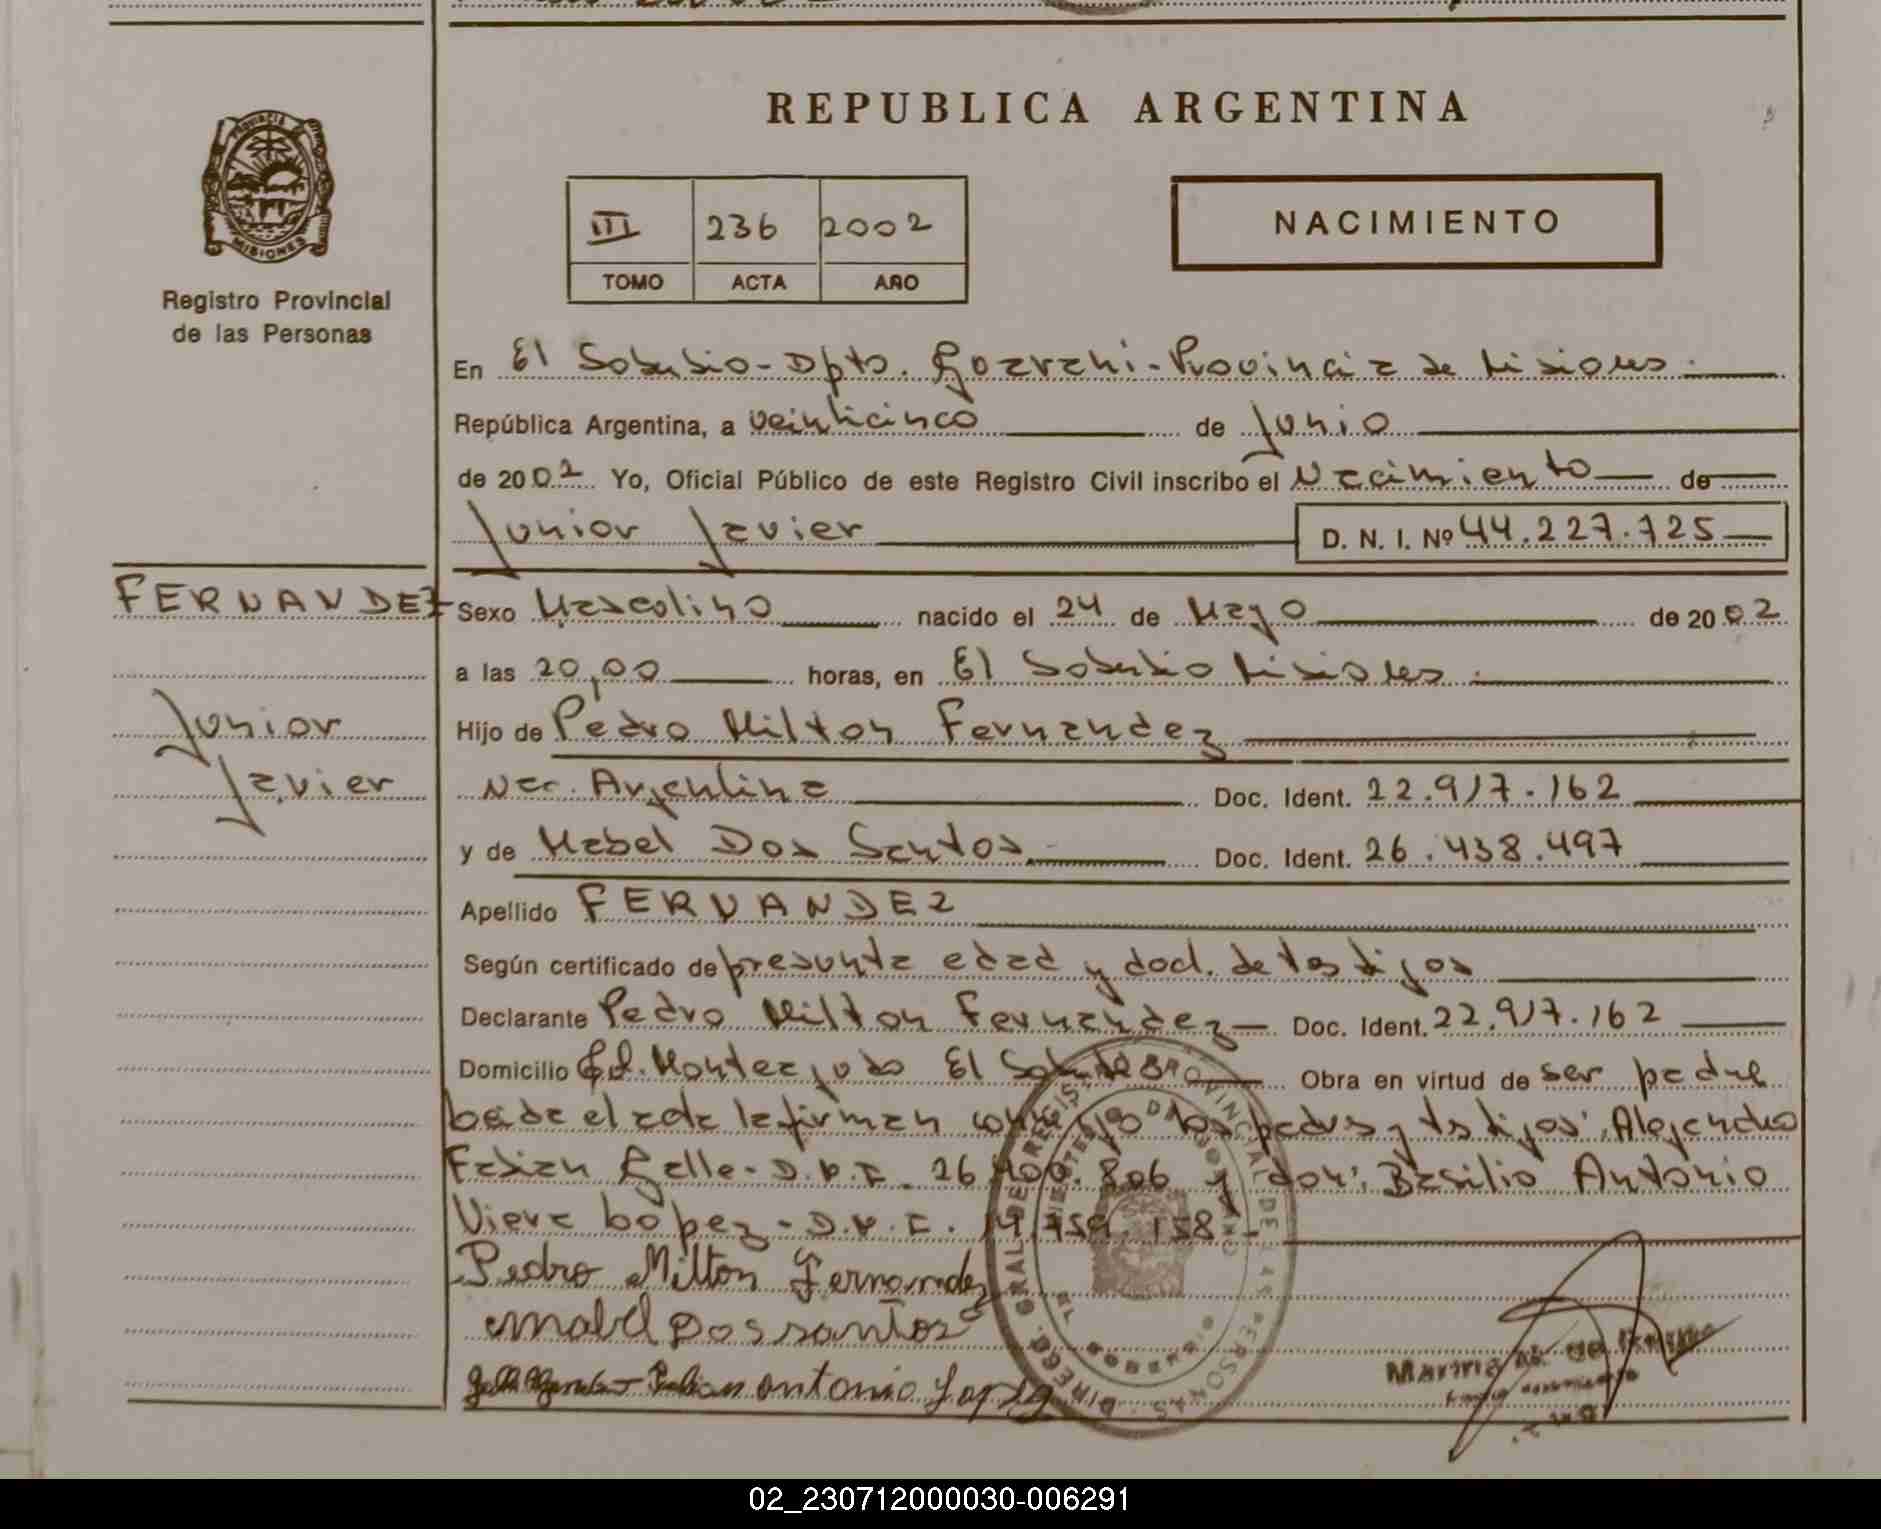 REPUBLICA ARGENTINA
PROVINCIA DE
MISIONES
Registro Provincial
de las Personas
III 236 2002
TOMO ACTA AÑO
NACIMIENTO
En El Soberbio - Dpto. Guarani - Provincia de Misiones.
República Argentina, a veinticinco de Junio
de 2002 Yo, Oficial Público de este Registro Civil inscribo el Nacimiento de
Junior Javier D. N. I. Nº 44.227.725
FERNANDEZ
Junior
Javier
Sexo Masculino nacido el 24 de Mayo de 2002
a las 20,00 horas, en El Soberbio Misiones.
Hijo de Pedro Milton Fernandez
Nac. Argentina Doc. Ident. 22.917.162
y de Mabel Dos Santos Doc. Ident. 26.438.497
Apellido FERNANDEZ
Según certificado de presunta edad y docl. de testigos
Declarante Pedro Milton Fernandez Doc. Ident. 22.917.162
Domicilio Cd. Monteagudo El Soberbio Obra en virtud de ser padre
leida el acta la firman conmigo los padres y testigos: Alejandro
Fabian Galle - D.N.I. 26.400.806 y don: Basilio Antonio
Viera Lopez - D.N.I. 14.759.158 -
Pedro Milton Fernandez
Mabel Dos santos
antonio Lopez
DIRECC. GRAL. DE REGISTRO PROVINCIAL DE LAS PERSONAS
SOBERBIO
02_230712000030-006291